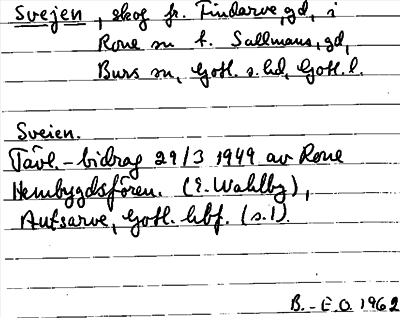 Svejen, skog fr. Findarve, gd, i
Rone sn t. Sallmans, gd,
Burs sn, Gotl. s. hd, Gotl. l.
Sveien.
Tävl.-bidrag 29/3 1949 av Rone
Hembygdsfören. (E. Wahlby),
Autsarve, Gotl. hbf. (s.1).
B.-E.O. 1962